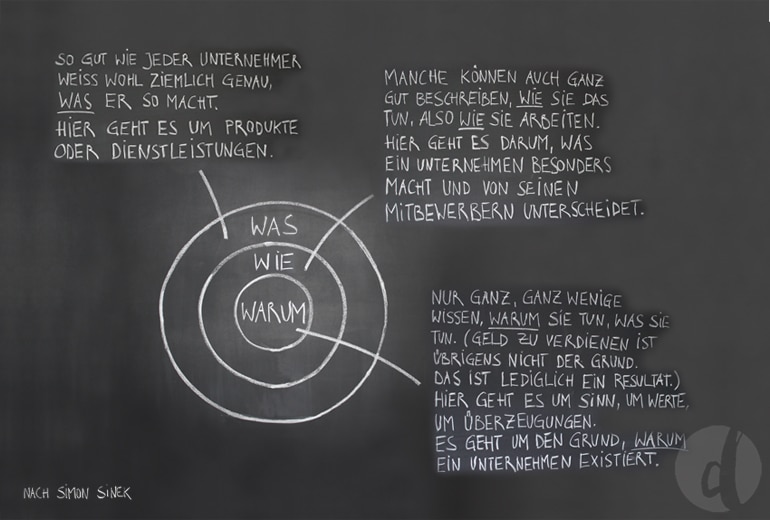 SO GUT WIE JEDER UNTERNEHMER
WEISS WOHL ZIEMLICH GENAU,
WAS ER SO MACHT.
HIER GEHT ES UM PRODUKTE
ODER DIENSTLEISTUNGEN.
MANCHE KÖNNEN AUCH GANZ
GUT BESCHREIBEN, WIE SIE DAS
TUN, ALSO WIE SIE ARBEITEN.
HIER GEHT ES DARUM, WAS
EIN UNTERNEHMEN BESONDERS
MACHT UND VON SEINEN
MITBEWERBERN UNTERSCHEIDET.
WAS
WIE
WARUM
NUR GANZ, GANZ WENIGE
WISSEN, WARUM SIE TUN, WAS SIE
TUN. (GELD ZU VERDIENEN IST
ÜBRIGENS NICHT DER GRUND.
DAS IST LEDIGLICH EIN RESULTAT.)
HIER GEHT ES UM SINN, UM WERTE,
UM ÜBERZEUGUNGEN.
ES GEHT UM DEN GRUND, WARUM
EIN UNTERNEHMEN EXISTIERT.
d
NACH SIMON SINEK